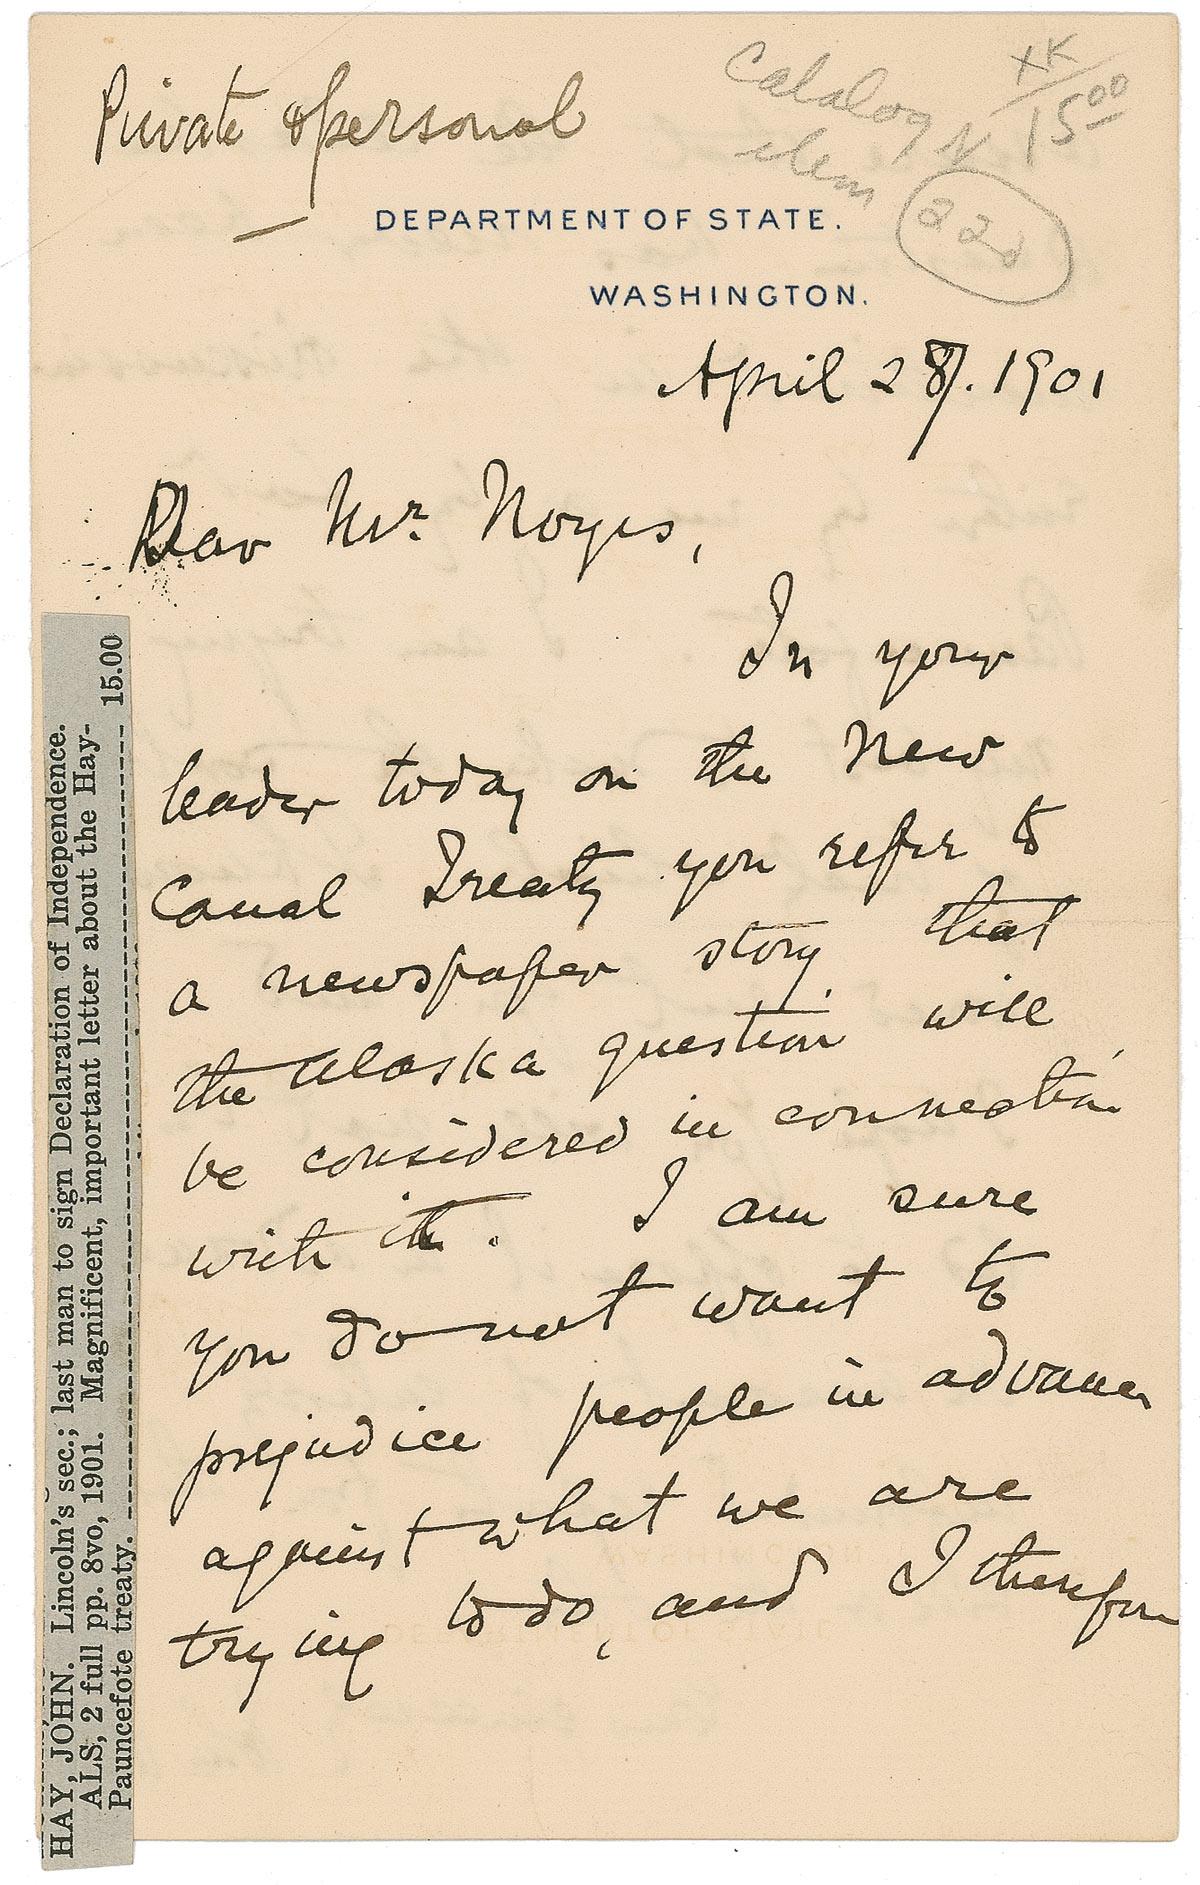 Private & personal
Catalog N
item
220
XK
15.00
DEPARTMENT OF STATE.
WASHINGTON.
April 28. 1901
Dear Mr. Noyes,
In your
leader today on the New
Canal Treaty you refer to
a newspaper story that
the Alaska question will
be considered in connection
with it. I am sure
you do not want to
prejudice people in advance
against what we are
trying to do, and I therefore
HAY, JOHN. Lincoln's sec.; last man to sign Declaration of Independence.
ALS, 2 full pp. 8vo, 1901. Magnificent, important letter about the Hay-
Pauncefote treaty. 15.00